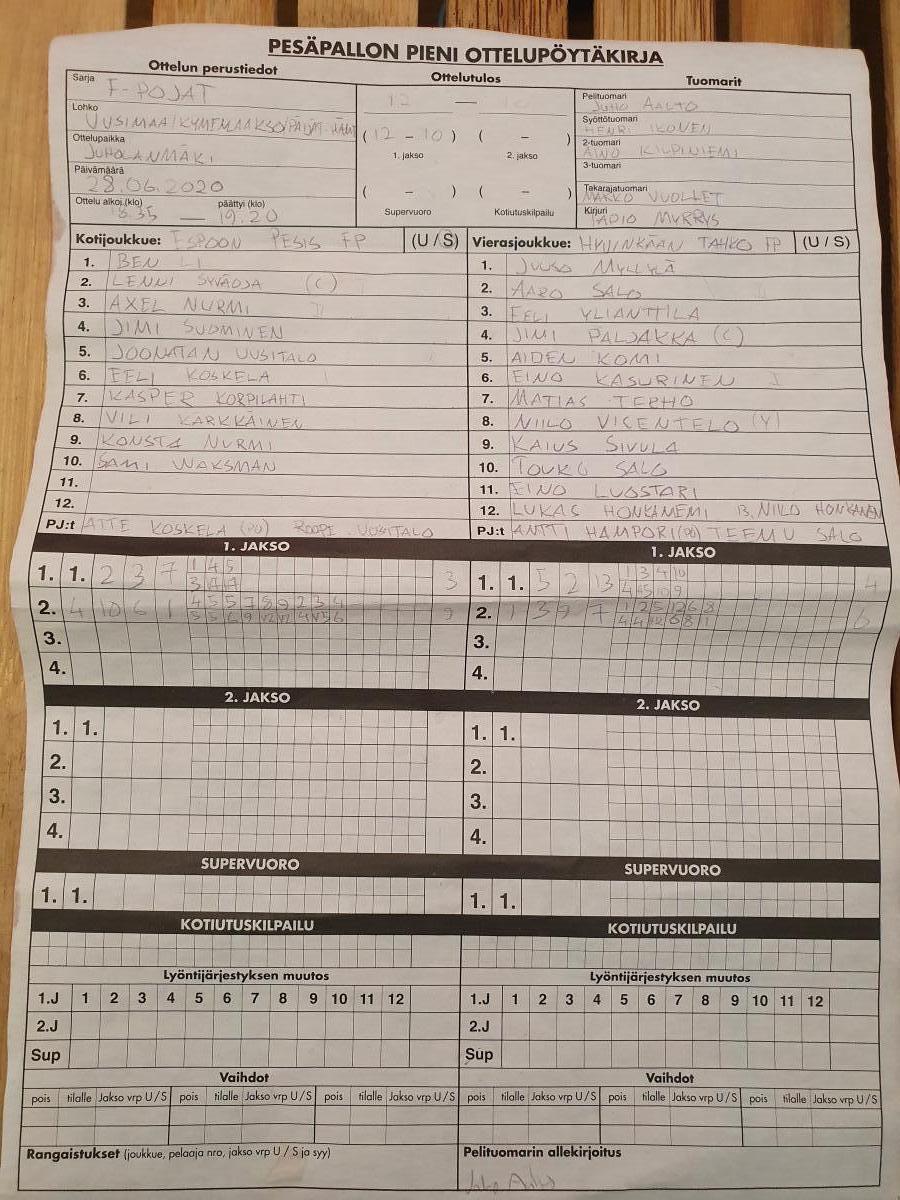 PESÄPALLON PIENI OTTELUPÖYTÄKIRJA
Ottelun perustiedot
Ottelutulos
Tuomarit
Sarja
F-POJAT
Lohko
UUSIMAA/KYMENLAAKSO/PÄIJÄT-HÄME
Ottelupaikka
JUHOLANMÄKI
Päivämäärä
28.06.2020
Ottelu alkoi (klo) päättyi (klo)
18.35 — 19.20
12 — 10
( 12 - 10 ) ( - )
1. jakso 2. jakso
( - ) ( - )
Supervuoro Kotiutuskilpailu
Pelituomari
JUHO AALTO
Syöttötuomari
HENRI IKONEN
2-tuomari
AINO KILPINIEMI
3-tuomari
Takarajatuomari
MARKO VUOLLET
Kirjuri
TAPIO MYRRYS
Kotijoukkue: ESPOON PESIS FP (U / S)
1. BEN LI
2. LENNI SYVÄOJA (C)
3. AXEL NURMI
4. JIMI SUOMINEN
5. JOONATAN UUSITALO
6. EELI KOSKELA
7. KASPER KORPILAHTI
8. VILI KARKKÄINEN
9. KONSTA NURMI
10. SAMI WAKSMAN
11.
12.
PJ:t ATTE KOSKELA (PJ) ROOPE UUSITALO
Vierasjoukkue: HYVINKÄÄN TAHKO FP (U / S)
1. JUUSO MYLLYLÄ
2. AARO SALO
3. EELI YLIANTTILA
4. JIMI PALJAKKA (C)
5. AIDEN KOMI
6. EINO KASURINEN
7. MATIAS TERHO
8. NIILO VICENTELO (Y)
9. KAIUS SIVULA
10. TOUKO SALO
11. EINO LUOSTARI
12. LUKAS HONKANIEMI 13. NIILO HONKANEN
PJ:t ANTTI HAMPORI (PJ) TEEMU SALO
1. JAKSO
1. 1. 2 3 7 1 4 5 3
3 7 7
2. 4 10 6 1 4 5 5 7 8 9 2 3 4 9
3.
4.
1. JAKSO
1. 1. 5 2 13 1 3 4 10 4
4 5 10 9
2. 1 3 9 7 1 2 5 12 6 8 6
4 4 12 6 8 1
3.
4.
2. JAKSO
1. 1.
2.
3.
4.
2. JAKSO
1. 1.
2.
3.
4.
SUPERVUORO
1. 1.
SUPERVUORO
1. 1.
KOTIUTUSKILPAILU
KOTIUTUSKILPAILU
Lyöntijärjestyksen muutos
1.J 1 2 3 4 5 6 7 8 9 10 11 12
2.J
Sup
Lyöntijärjestyksen muutos
1.J 1 2 3 4 5 6 7 8 9 10 11 12
2.J
Sup
Vaihdot
pois tilalle Jakso vrp U / S pois tilalle Jakso vrp U / S pois tilalle Jakso vrp U / S
Vaihdot
pois tilalle Jakso vrp U / S pois tilalle Jakso vrp U / S pois tilalle Jakso vrp U / S
Rangaistukset (joukkue, pelaaja nro, jakso vrp U / S ja syy)
Pelituomarin allekirjoitus
Juho Aalto